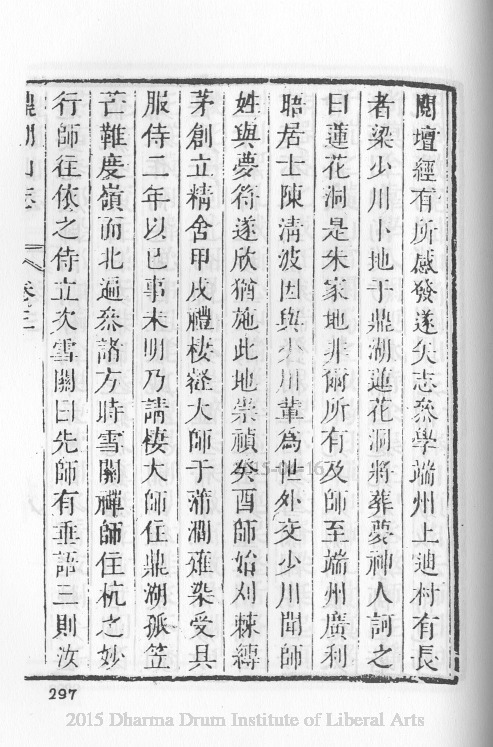 閱壇經有所感發遂矢志叅學端州上迪村有長
者梁少川卜地于鼎湖蓮花洞將葬夢神人訶之
曰蓮花洞是朱家地非爾所有及師至端州廣利
晤居士陳清波因與少川輩為世外交少川聞師
姓與夢符遂欣猶施此地崇禎癸酉師始刈棘縛
茅創立精舍甲戌禮棲壑大師于蒲澗薙染受具
服侍二年以已事未明乃請棲大師住鼎湖孤笠
芒鞋度嶺而北遍叅諸方時雪關禪師住杭之妙
行師往依之侍立次雪關曰先師有垂語三則汝
鼎湖山志 卷三
297
2015 Dharma Drum Institute of Liberal Arts